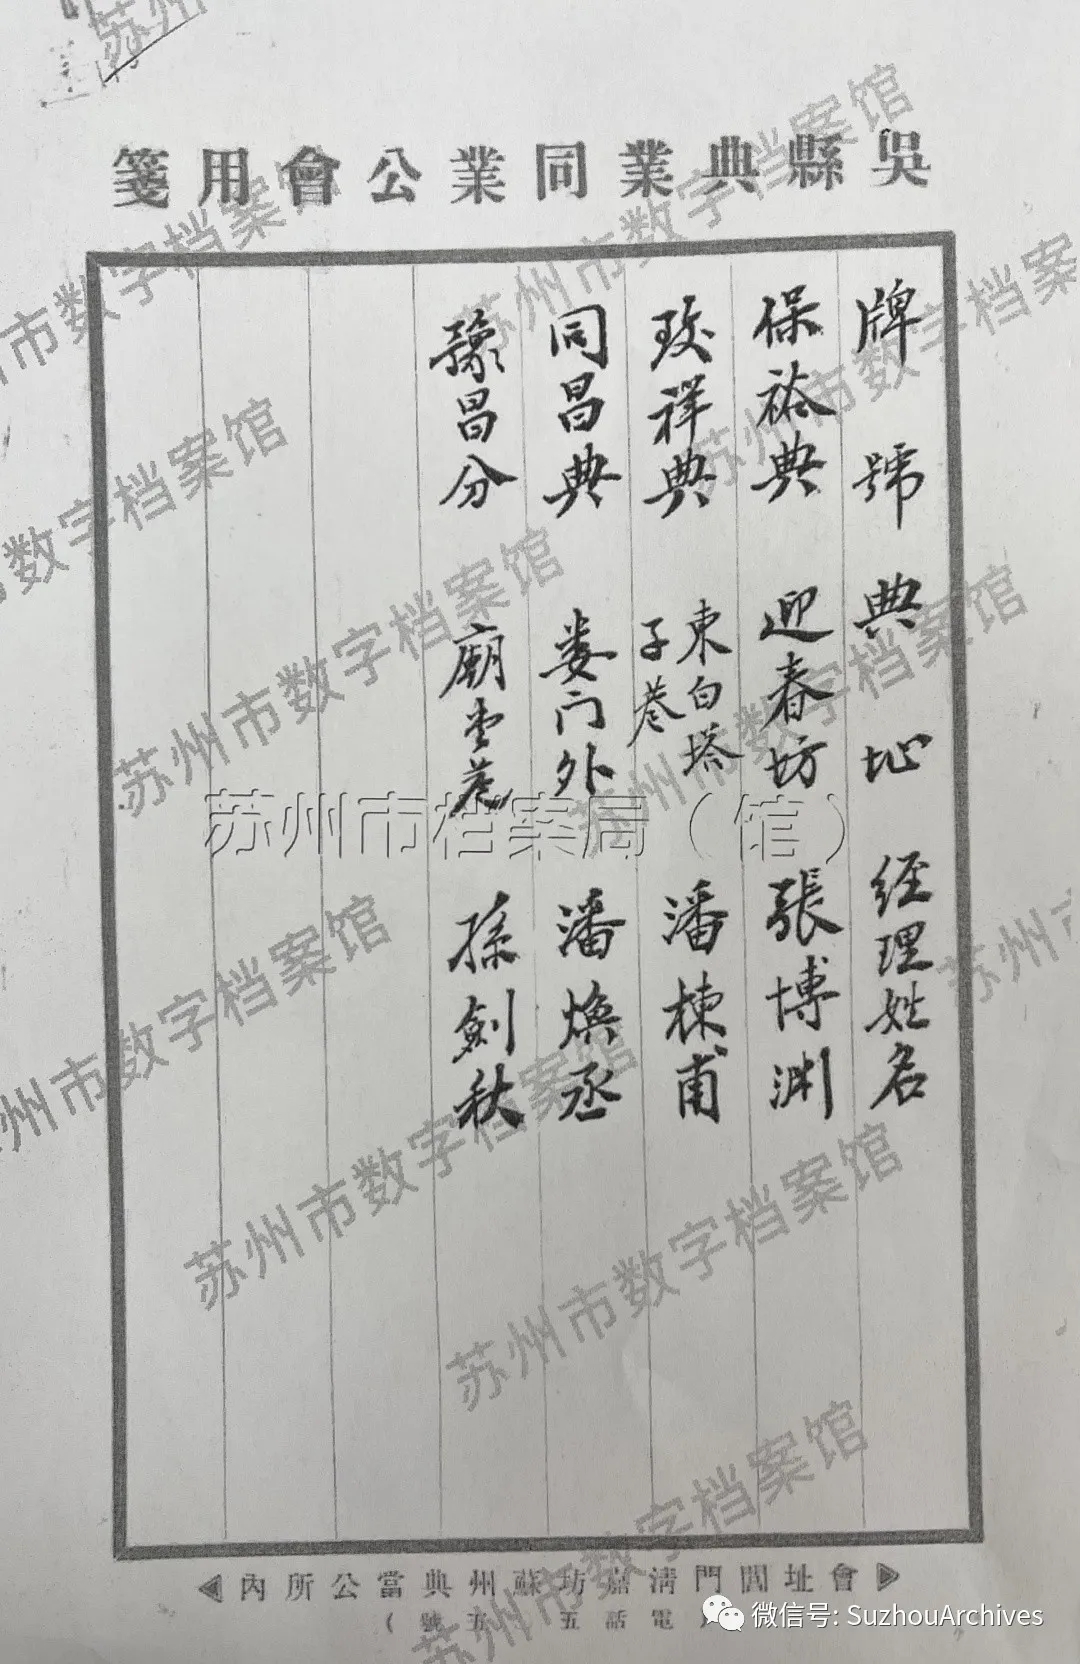 吳縣典業同業公會用箋
牌號 典址 经理姓名
保裕典 迎春坊 張博渊
珍祥典 東白塔子巷 潘棟甫
同昌典 娄门外 潘焕丞
豫昌分 廟堂巷 孫劍秋
會址閶門清嘉坊蘇州典當公所內
苏州市档案局（馆）
苏州市数字档案馆
微信号: SuzhouArchives